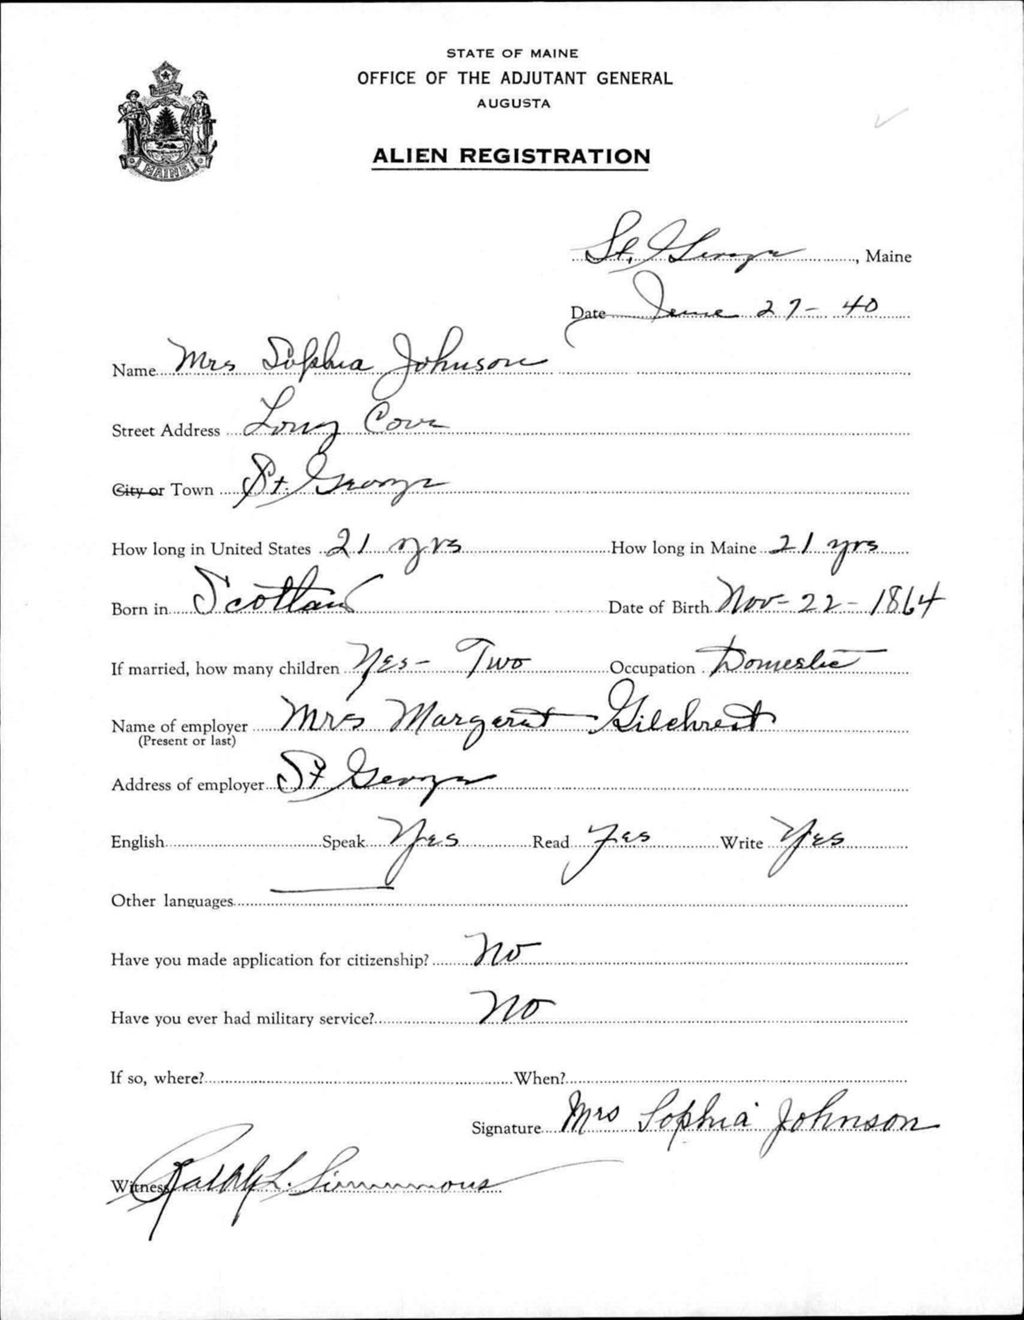 STATE OF MAINE
OFFICE OF THE ADJUTANT GENERAL
AUGUSTA
ALIEN REGISTRATION
MAINE
St. George, Maine
Date June 27-40
Name Mrs Sophia Johnson
Street Address Long Cove
City or Town St. George
How long in United States 21 yrs How long in Maine 21 yrs
Born in Scotland Date of Birth Nov-22-1864
If married, how many children Yes-Two Occupation Domestic
Name of employer Mrs Margaret Gilchrest
(Present or last)
Address of employer St George
English Speak Yes Read Yes Write Yes
Other languages
Have you made application for citizenship? No
Have you ever had military service? No
If so, where? When?
Signature Mrs Sophia Johnson
Witness Ralph L. Simmons